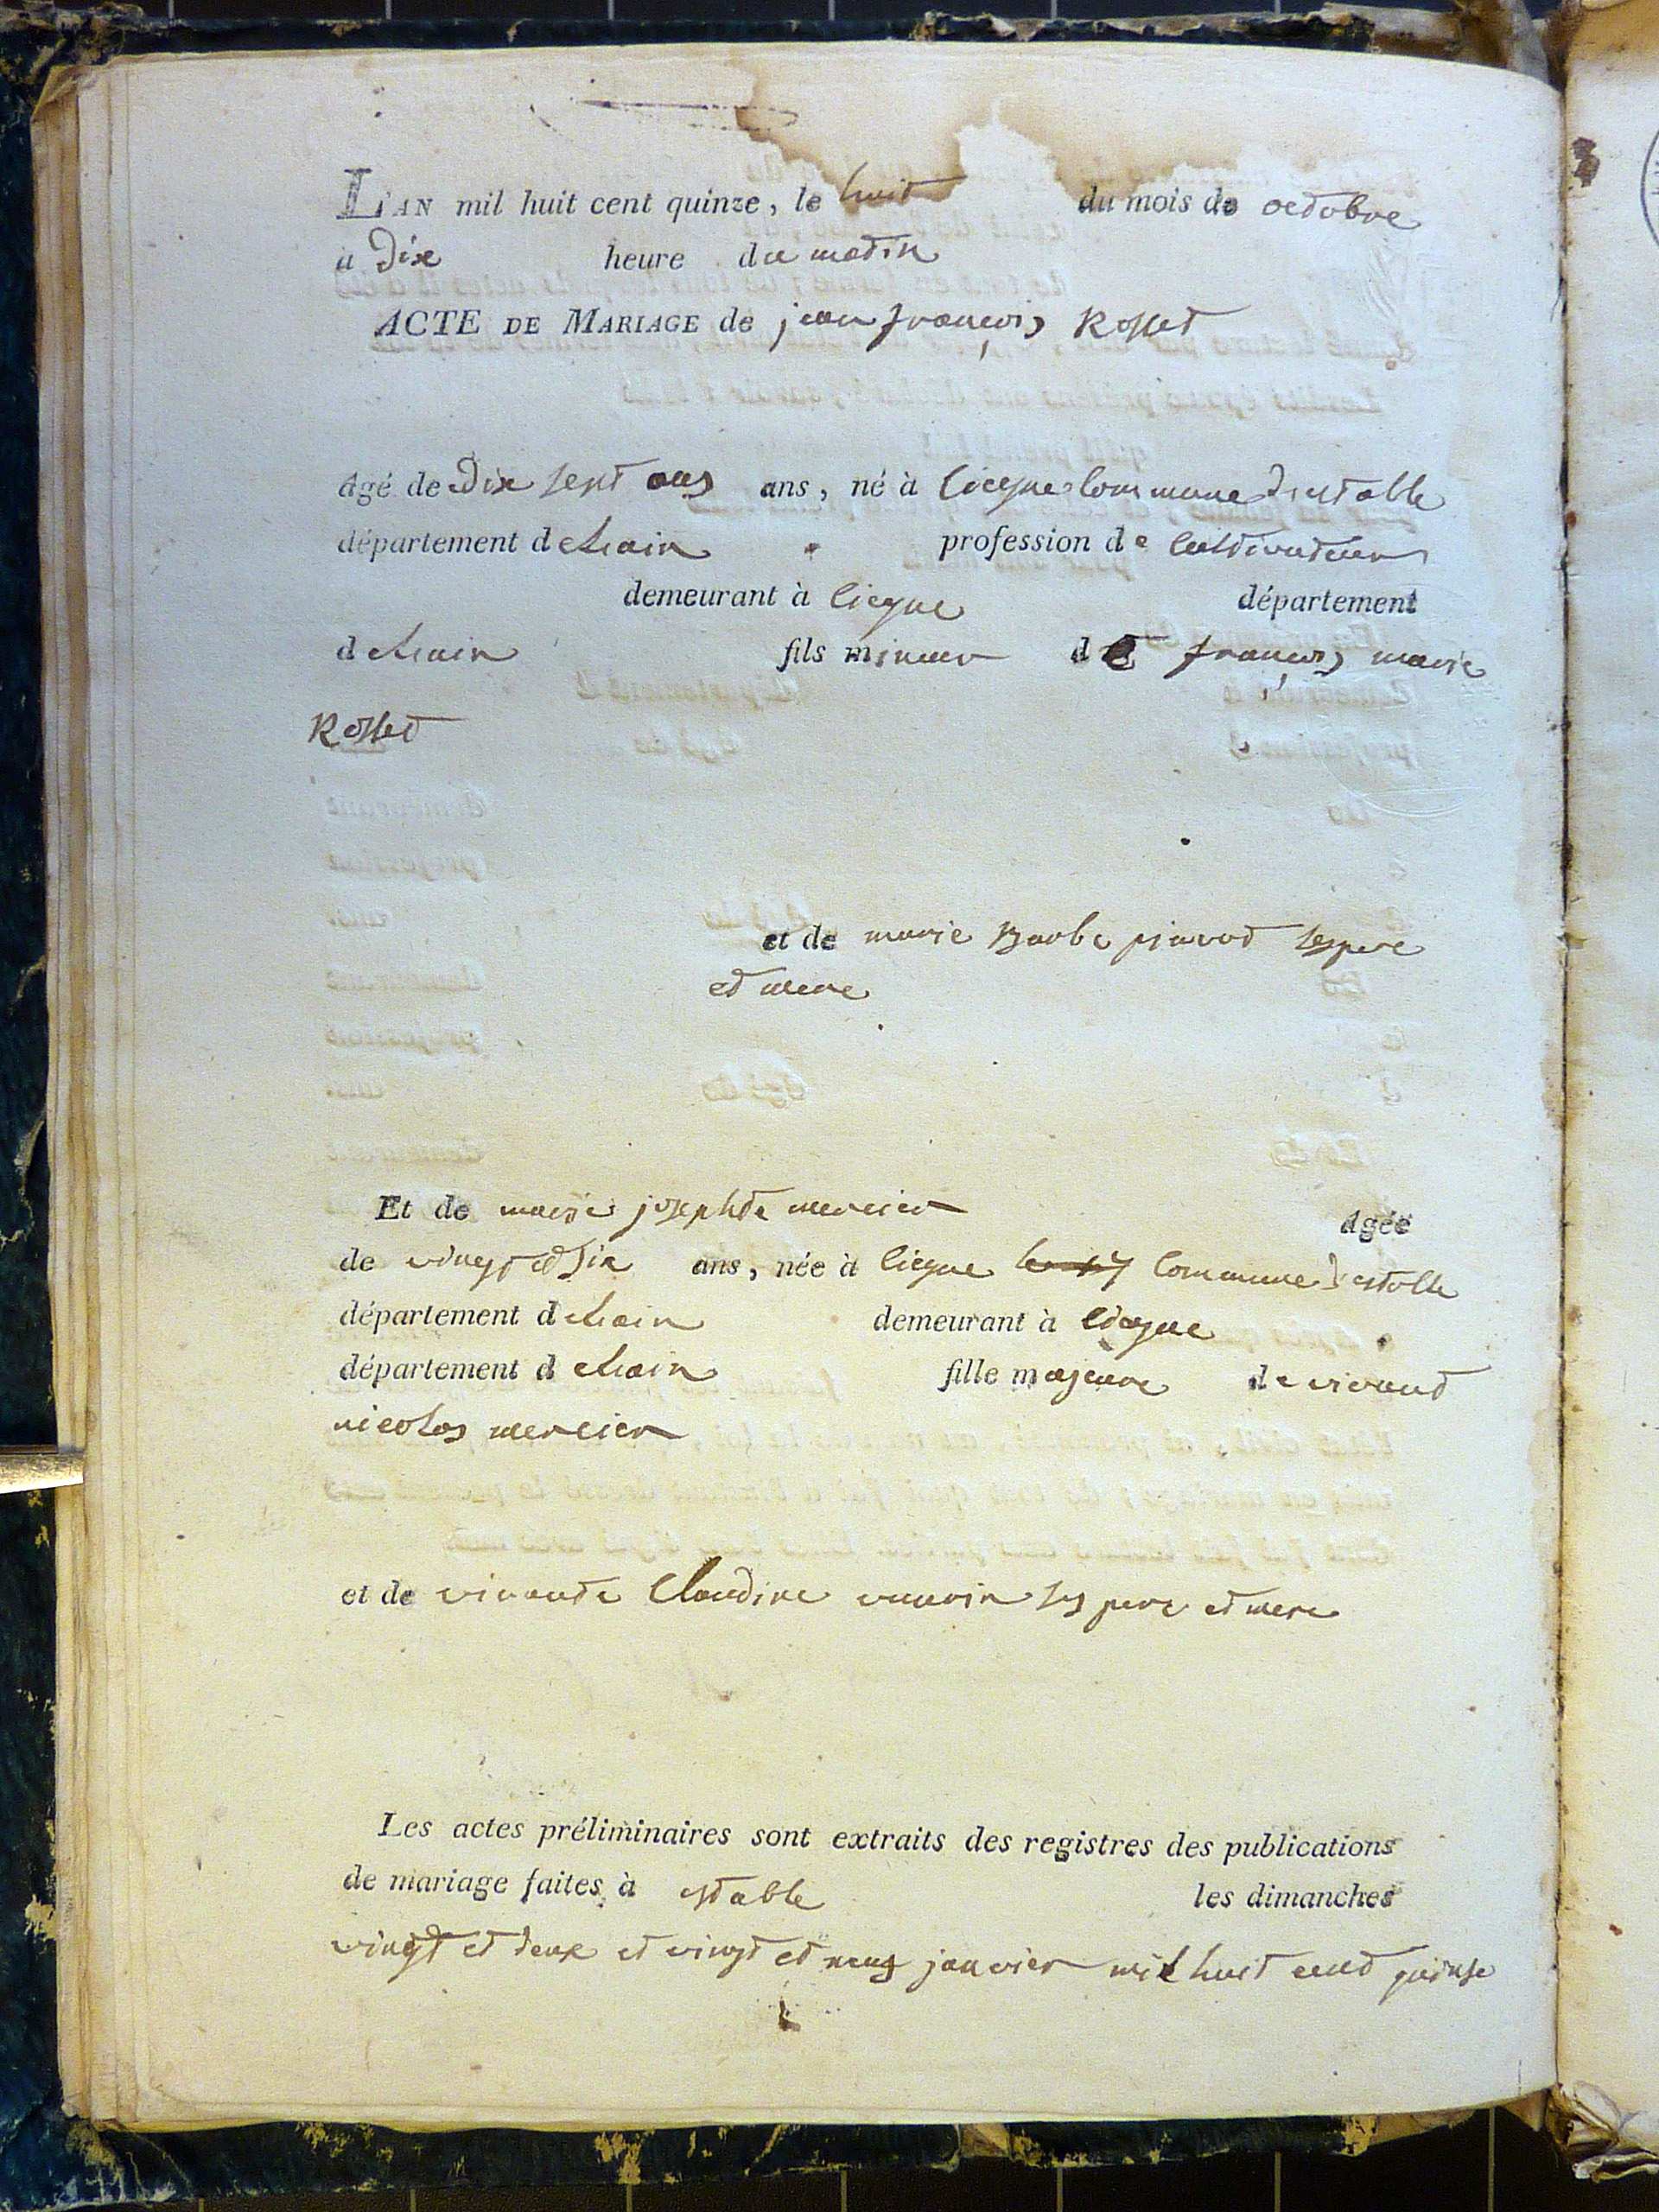 L'AN mil huit cent quinze, le huit du mois de octobre
a dix heure du matin
ACTE DE MARIAGE de jean françois Rosset
âgé de dix sept ans ans, né à liegne Commune d'estable
département de Lain profession de Cultivateur
demeurant à liegne département
de Lain fils mineur de françois marie
Rosset
et de marie Barbe pravod ses pere
et mere
Et de marie josephte mercier âgée
de vingt et six ans, née à liegne Commune d'estable
département de Lain demeurant à liegne
département de Lain fille majeure de vivant
nicolas mercier
et de vivante Claudine vauvrin ses pere et mere
Les actes préliminaires sont extraits des registres des publications
de mariage faites à estable les dimanches
vingt et deux et vingt et neuf janvier mil huit cent quinse